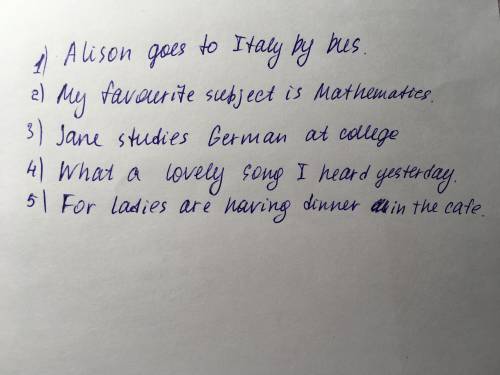 1) Alison goes to Italy by bus.
2) My favourite subject is Mathematics.
3) Jane studies German at college
4) What a lovely song I heard yesterday.
5) For ladies are having dinner in the cafe.